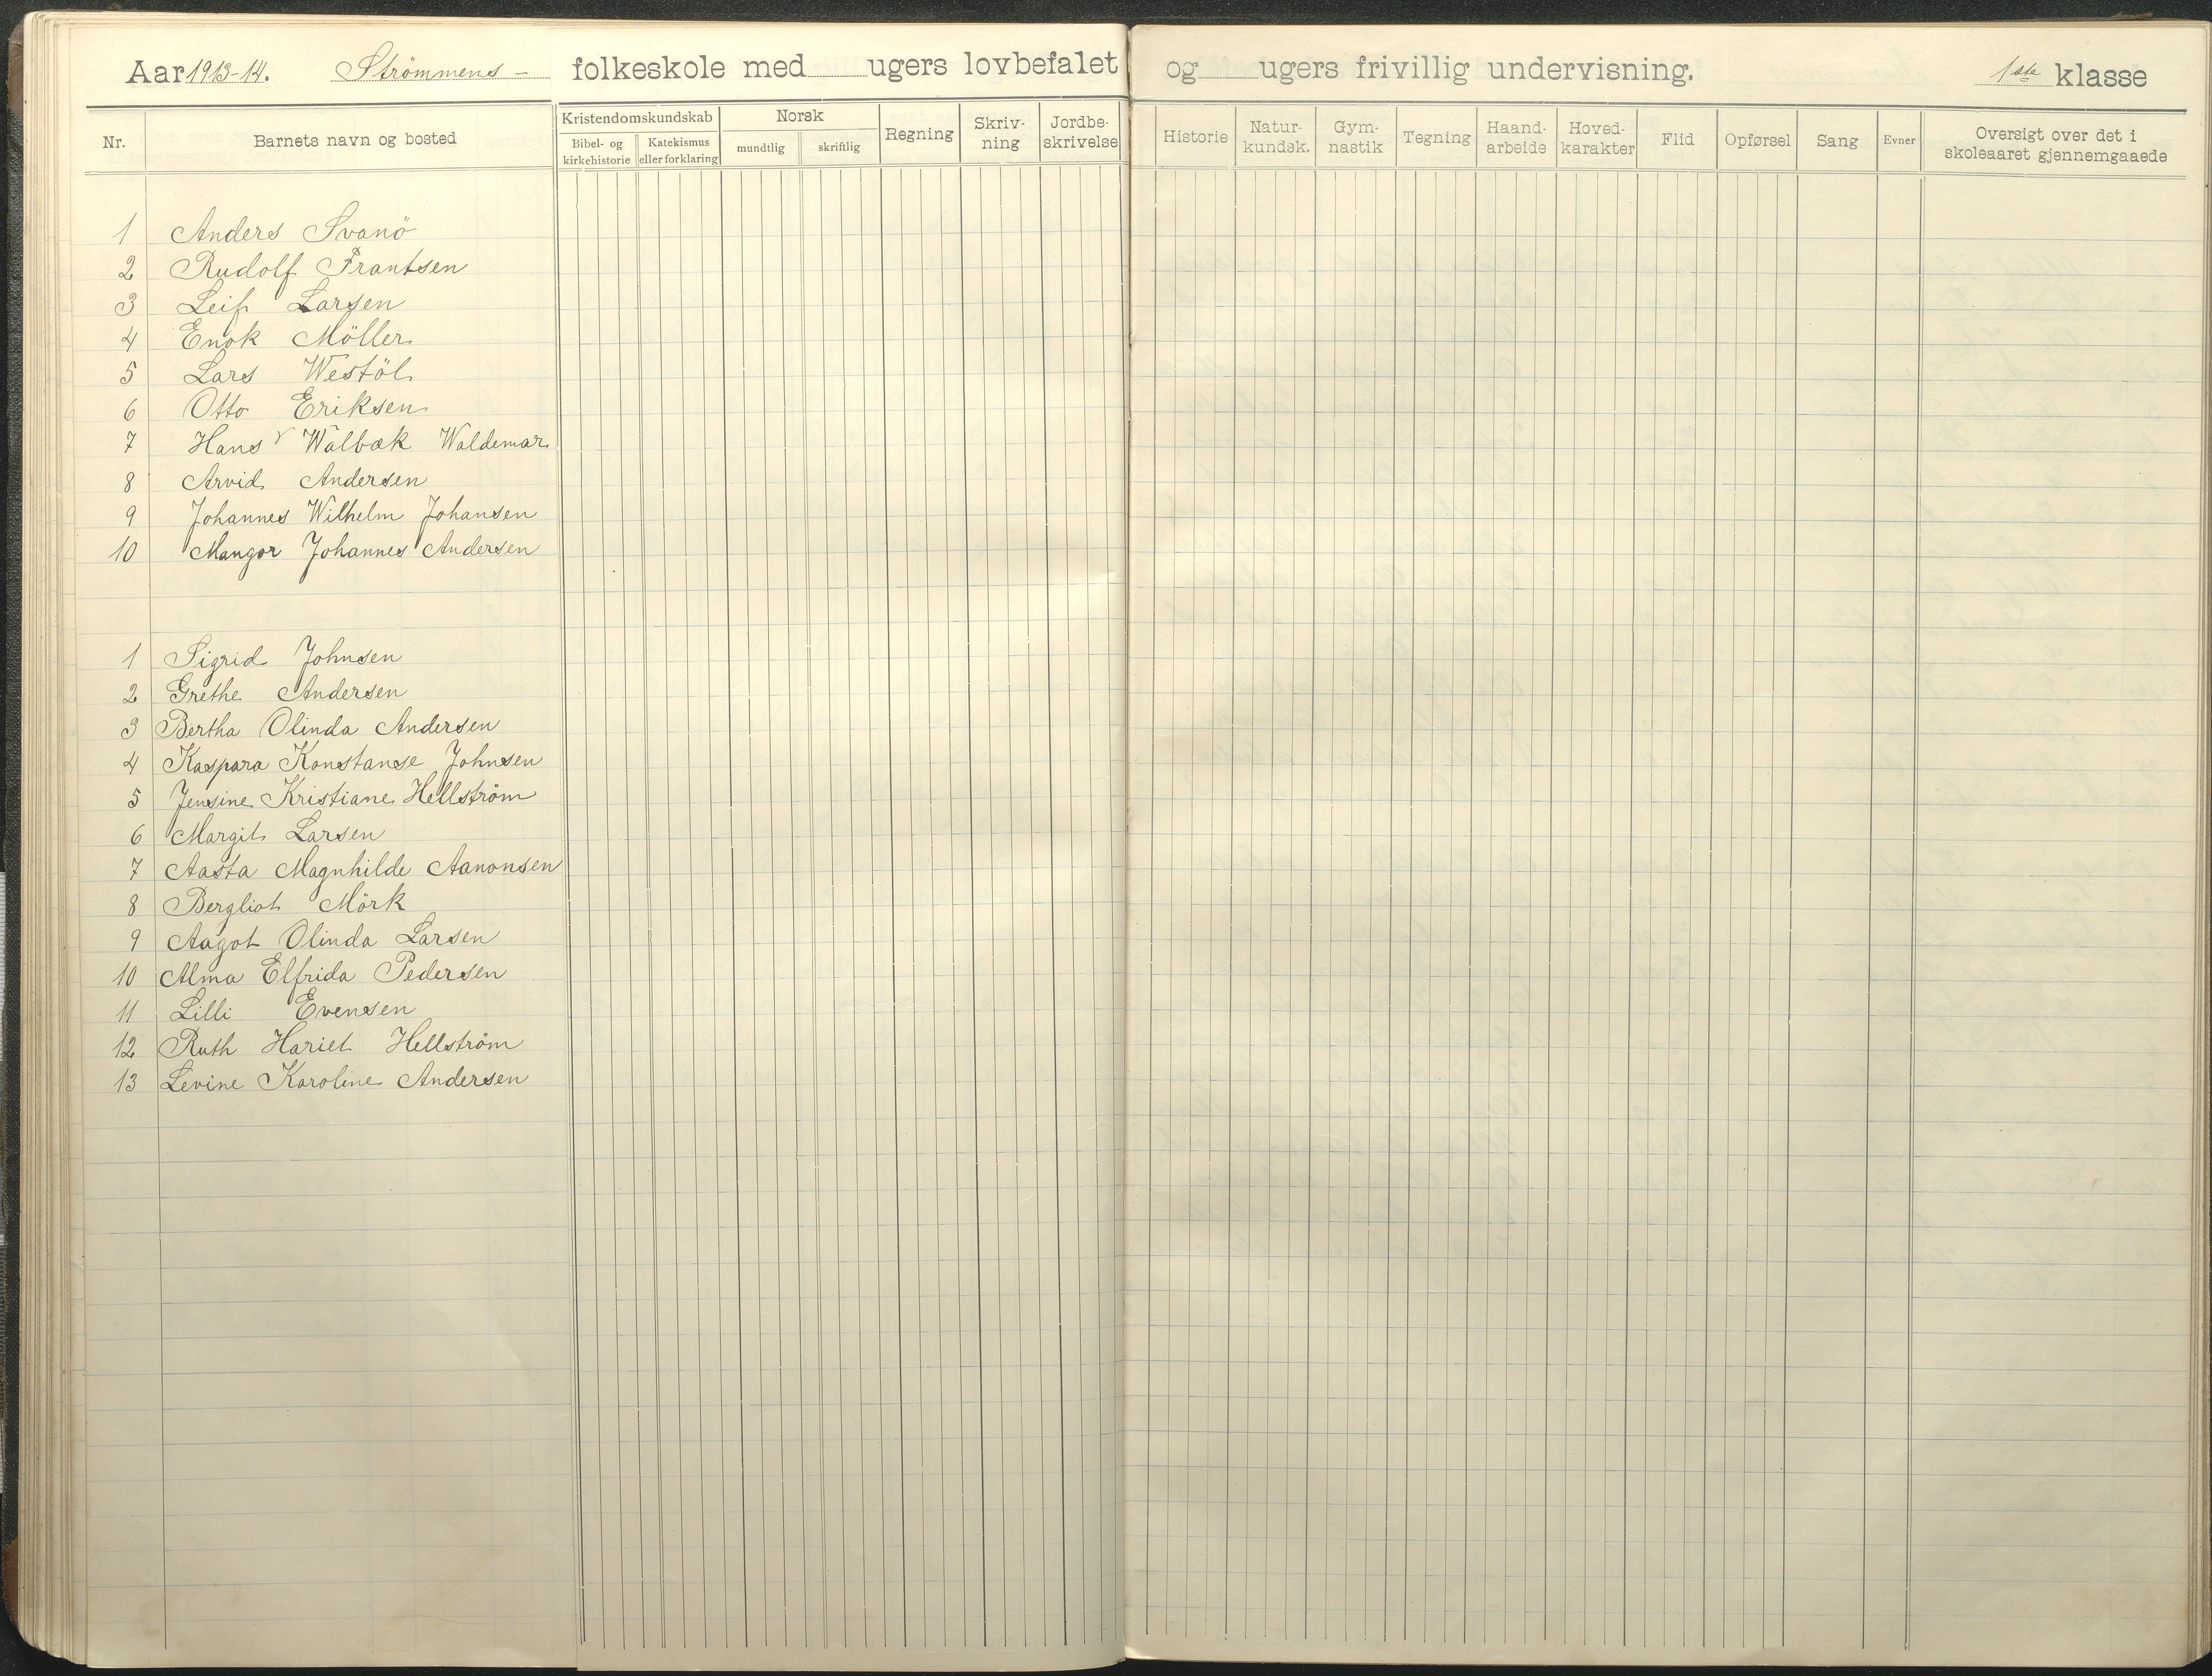 Aar 1913-14. Strömmens - folkeskole med ugers lovbefalet og ugers frivillig undervisning. 1ste klasse
Nr. Barnets navn og bosted Kristendomskundskab Bibel- og kirkehistorie Katekismus eller forklaring Norsk mundtlig skriftlig Regning Skriv-ning Jordbe-skrivelse Historie Natur-kundsk. Gym-nastik Tegning Haand-arbeide Hoved-karakter Flid Opførsel Sang Evner Oversigt over det i skoleaaret gjennemgaaede
1 Anders Svanö
2 Rudolf Frantsen
3 Leif Larsen
4 Enok Möller
5 Lars Westöl
6 Otto Eriksen
7 Hans Walbæk Waldemar
8 Arvid Andersen
9 Johannes Wilhelm Johansen
10 Mangor Johannes Andersen
1 Sigrid Johnsen
2 Grethe Andersen
3 Bertha Olinda Andersen
4 Kaspara Konstanse Johnsen
5 Jensine Kristiane Hellström
6 Margit Larsen
7 Aasta Magnhilde Aanonsen
8 Bergliot Mörk
9 Aagot Olinda Larsen
10 Alma Elfrida Pedersen
11 Lilli Evensen
12 Ruth Hariet Hellström
13 Levine Karoline Andersen